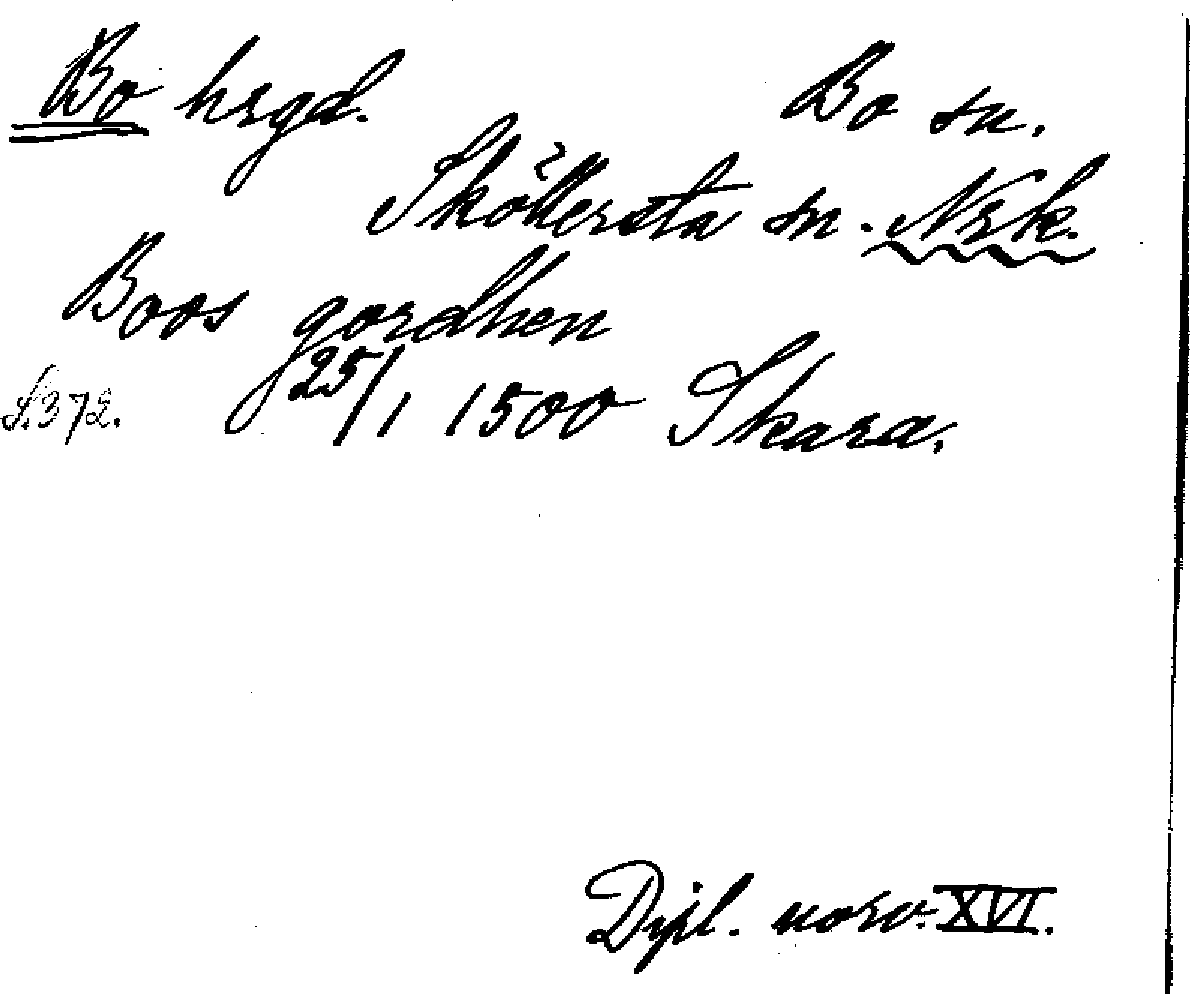 Bo hrgd. Bo sn.
Sköllersta sn. Nrk.
Boos gordhen
S. 372. 25/1 1500 Skara.
Dipl. norv. XVI.